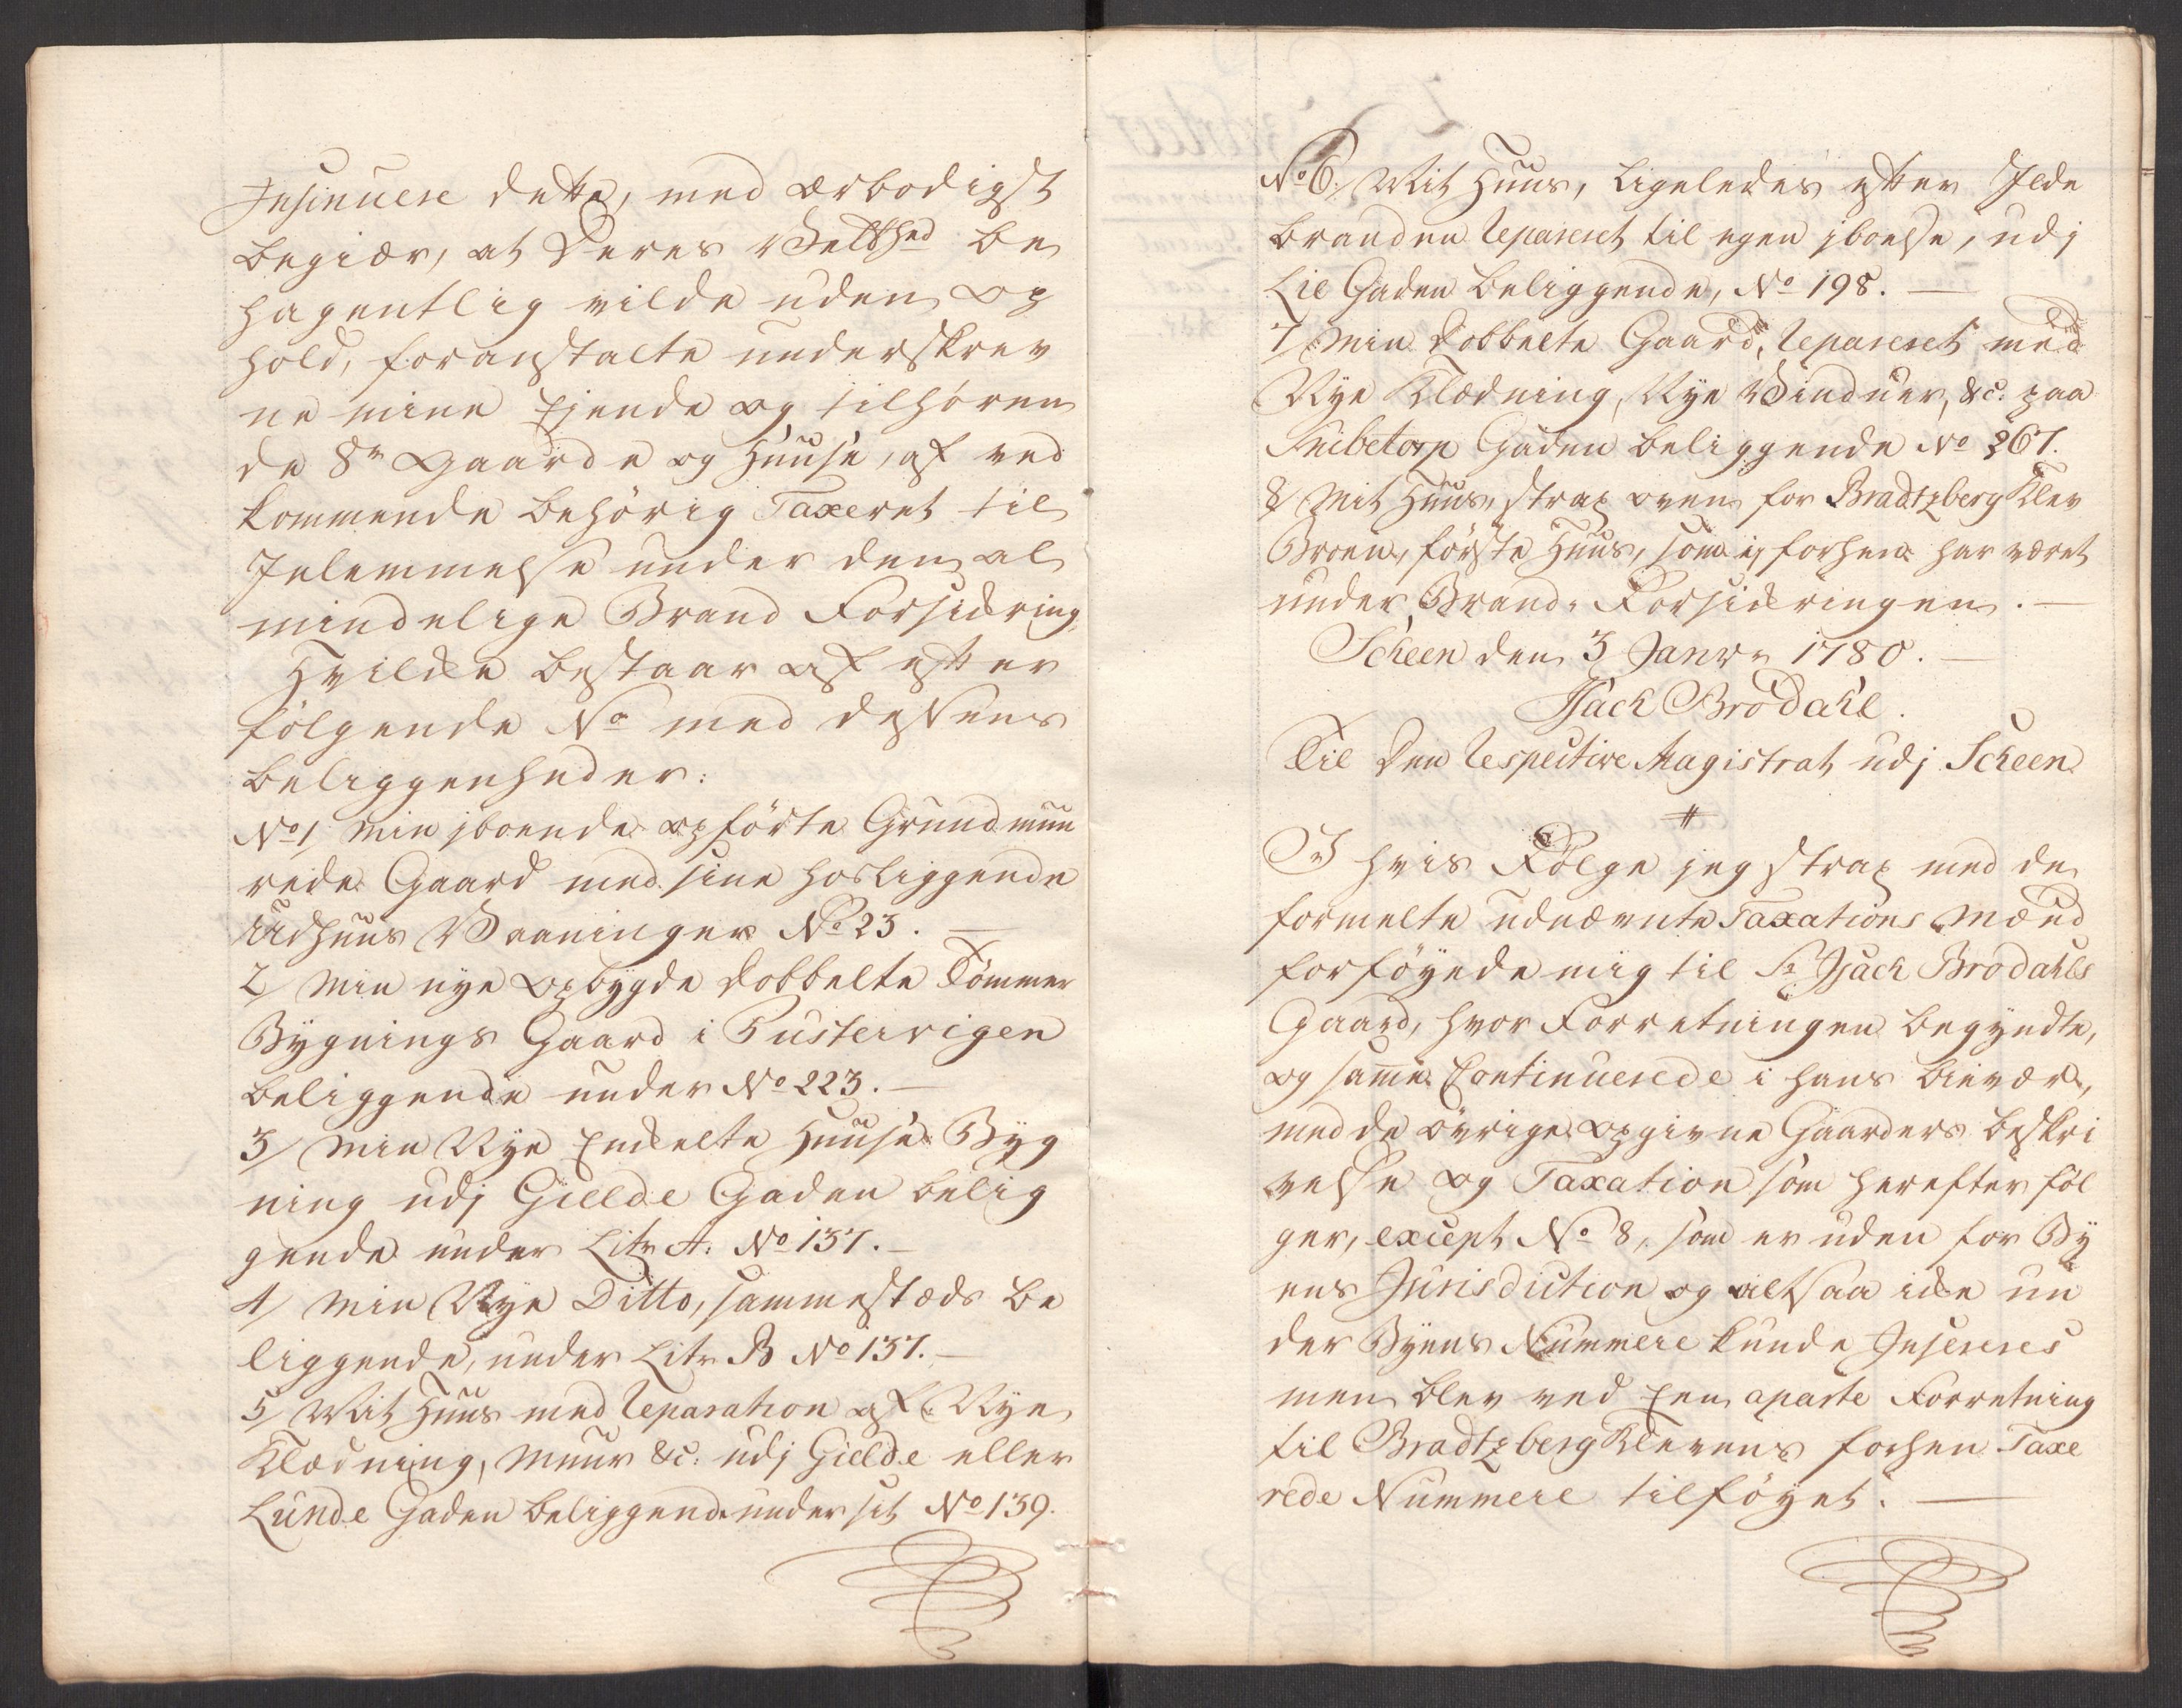 Insinuere dette, med ærbodigst
begiær, at Deres Velbhed be
hagentlig vilde uden op
hold, foranstalte underskrev
ne mine Ejende og tilhören
de 8te Gaarde og Huuse, af ved
kommende behörig Taxeret til
Inlemmelse under den al
mindelige Brand Forsickring,
Hvilcke bestaar af efter
fölgende No med desSens
beliggenheder:
No 1, Min jboende opförte Grundmuu
rede Gaard med sine hosliggende
Udhuus Vaaninger No 23. —
2/ Min nye opbygde dobbelte Tömmer
Bygnings Gaard i Pustervigen
beliggende under No 223. —
3/ Min Nye Enckelte Huuse Byg
ning udj Gielde Gaden belig
gende under Litr A: No 137. —
4/ Min Nye Ditto, sammestæds be
liggende, under Litr B No 137. —
5/ Mit Huus med Reparation af Nye
Klædning, Muur &c: udj Gielde eller
Lunde Gaden beliggende under sit No 139.
No 6. Mit Huus, ligeledes efter Ilde
branden Repareret til egen jboelse, udj
Lie Gaden beliggende, No 198. —
7/ Min dobbelte Gaard, Repareret med
Nye Klædning, Nye Vinduer, &c. paa
Snibetorp Gaden beliggende No 267.
8/ Mit Huus, strax oven for Bradtzberg Klev
Broen, förste Huus, som ej forhen har været
under Brand-Forsickringen. —
Scheen den 3 Janvr 1780. —
Isach Brodahl.
Til Den Respective Magistrat udj Scheen
#
I hvis Fölge jeg strax med de
formelte udnævnte Taxations Mænd
forföyede mig til Sr Isach Brodahls
Gaard, hvor Forretningen begyndte,
og samme Continuerede i hans bievær,
med de övrige opgivne Gaarders beskri
velse og Taxation som herefter föl
ger, except No 8, som er uden for By
ens Jurisdiction og altsaa icke un
der Byens Nummere kunde Insereres
men blev ved Een aparte Forretning
til Bradtzberg Klevens forhen Taxe
rede Nummere tilföyet. —